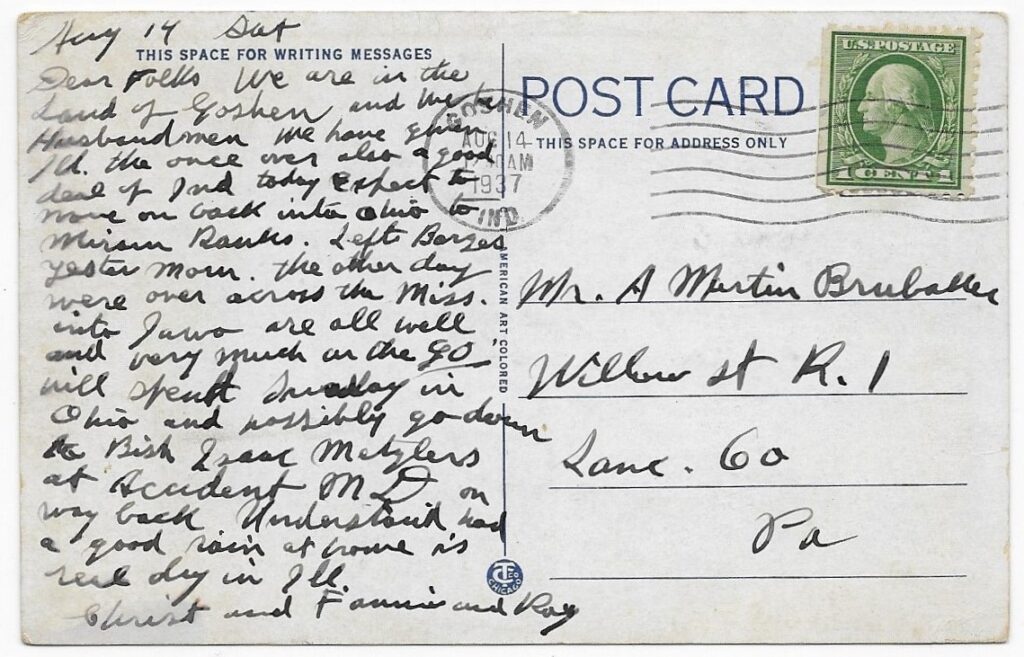 Aug 14 Sat
THIS SPACE FOR WRITING MESSAGES
Dear Folks We are in the
Land of Goshen and we
Husbandmen We have given
Ill. the once over also a good
deal of Ind today Expect to
move on back into Ohio to
Miriam Ranks. Left
yester morn. The other day
were over across the Miss.
into Iowa are all well
and very much on the GO
will spent Sunday in
Ohio and possibly go down
to Bish Isaac Metzlers
at Accident MD on
way back. Understand had
a good rain at home is
real dry in Ill.
Christ and Fannie and Roy
POST CARD
THIS SPACE FOR ADDRESS ONLY
U.S. POSTAGE
1 CENT 1
GOSHEN
AUG 14
AM
1937
IND.
AMERICAN ART COLORED
CTCO
CHICAGO
Mr. A Martin Brubaker
Willow st R. 1
Lanc. Co
Pa